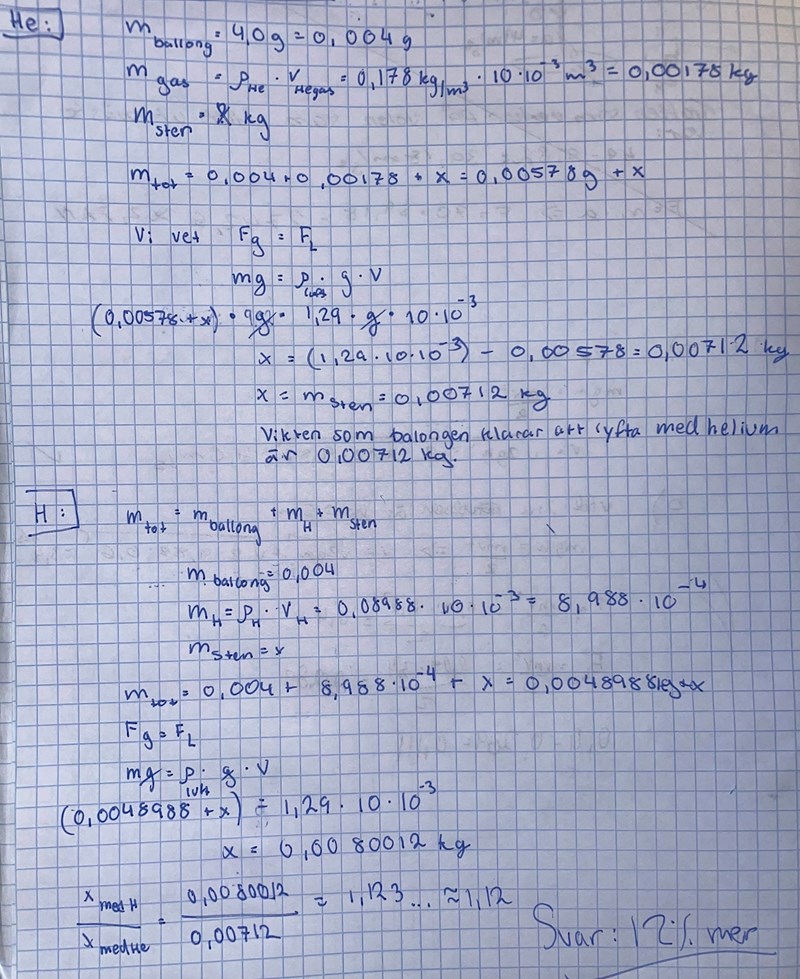 He:
m_ballong = 4,0g = 0,004 g
m_gas = ρ_He · V_Hegas = 0,178 kg/m³ · 10·10⁻³ m³ = 0,00178 kg
m_sten = x kg
m_tot = 0,004 + 0,00178 + x = 0,00578g + x
Vi vet F_g = F_L
mg = ρ_luft · g · V
(0,00578 + x) · g = 1,29 · g · 10·10⁻³
x = (1,29·10·10⁻³) - 0,00578 = 0,00712 kg
x = m_sten = 0,00712 kg
Vikten som balongen klarar att lyfta med helium
är 0,00712 kg.
H:
m_tot = m_ballong + m_H + m_sten
m_ballong = 0,004
m_H = ρ_H · V_H = 0,08988 · 10·10⁻³ = 8,988·10⁻⁴
m_sten = x
m_tot = 0,004 + 8,988·10⁻⁴ + x = 0,0048988kg+x
F_g = F_L
mg = ρ_luft · g · V
(0,0048988 + x) = 1,29 · 10·10⁻³
x = 0,0080012 kg
x_med H / x_med He = 0,0080012 / 0,00712 = 1,123... ≈ 1,12
Svar: 12% mer